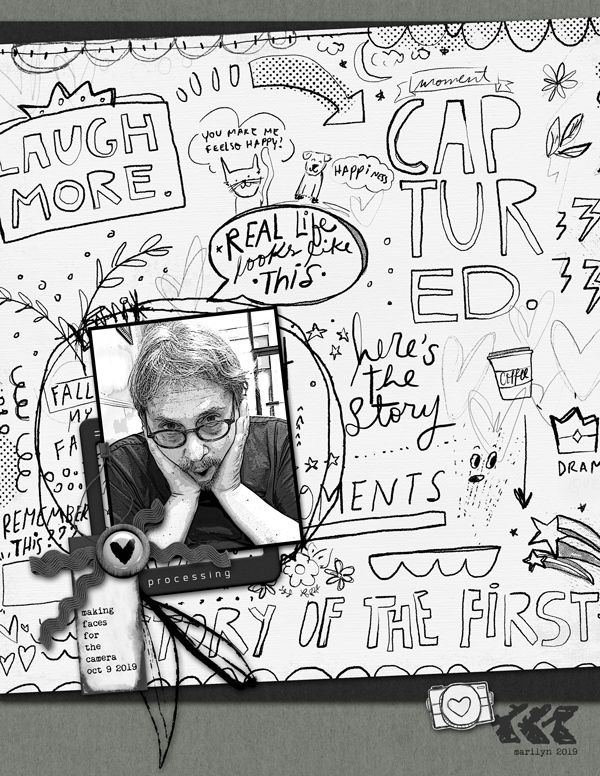 moment
CAP
TUR
ED.
LAUGH
MORE.
YOU MAKE ME
FEEL SO HAPPY!
HAPPINESS
REAL Life
looks like
THIS.
here's
the
Story
COFFEE
FALL
MY
FA
MENTS
DRAM
REMEMBER
THIS???
processing
TORY OF THE FIRST
making
faces
for
the
camera
oct 9 2019
marilyn 2019